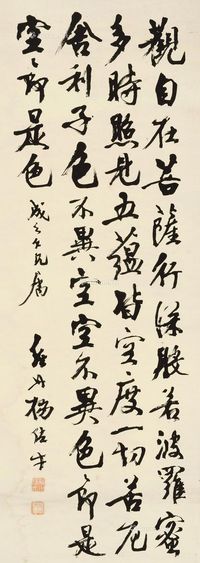 觀自在菩薩行深般若波羅蜜
多時照見五蘊皆空度一切苦厄
舍利子色不異空空不異色色即是
空空即是色 成之仁兄屬